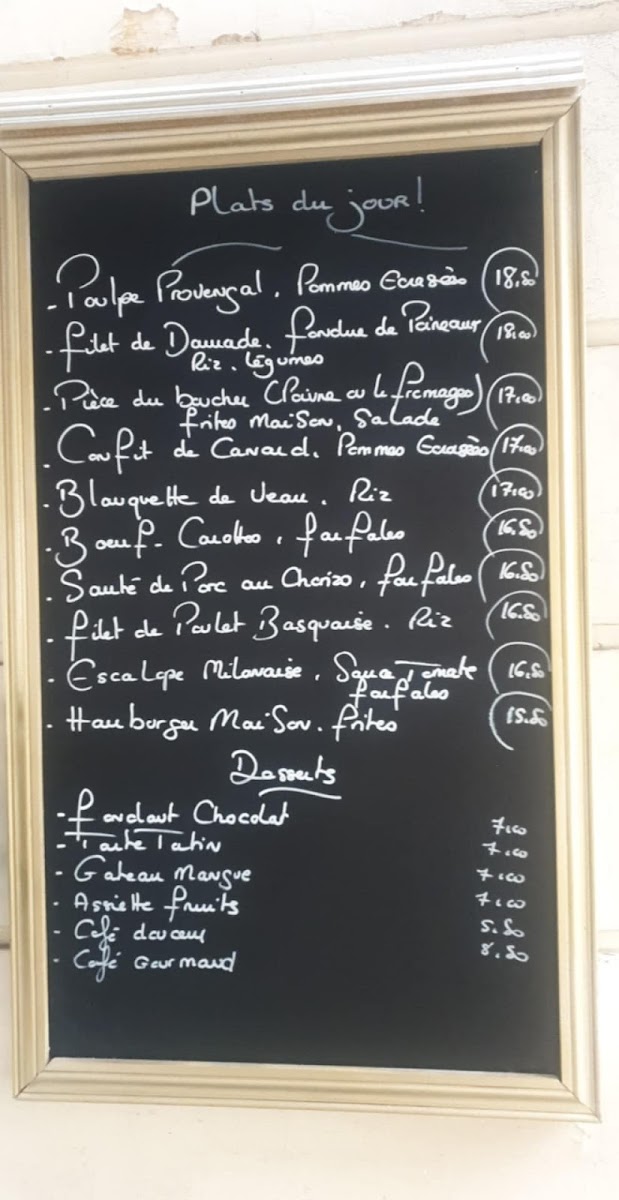 Plats du jour!
- Poulpe Provençal. Pommes Ecrasées 18,50
- filet de Daurade. fondue de Poireaux 18,00
Riz. légumes
- Pièce du boucher (Poivre ou le fromages) 17,00
frites Maison, Salade
- Confit de Canard. Pommes Ecrasées 17,00
- Blanquette de Veau. Riz 17,00
- Boeuf-Carottes, farfales 16.50
- Sauté de Porc au Chorizo, farfales 16.50
- filet de Poulet Basquaise. Riz 16.50
- Escalope Milanaise. Sauce Tomate 16,50
farfales
- Hamburger MaiSon. frites 15.50
Desserts
- fondant Chocolat 7,00
- Tarte Tatin 7,00
- Gateau Mangue 7,00
- Assiette fruits 7,00
- Café douceur 5.50
- Café Gourmand 8.50